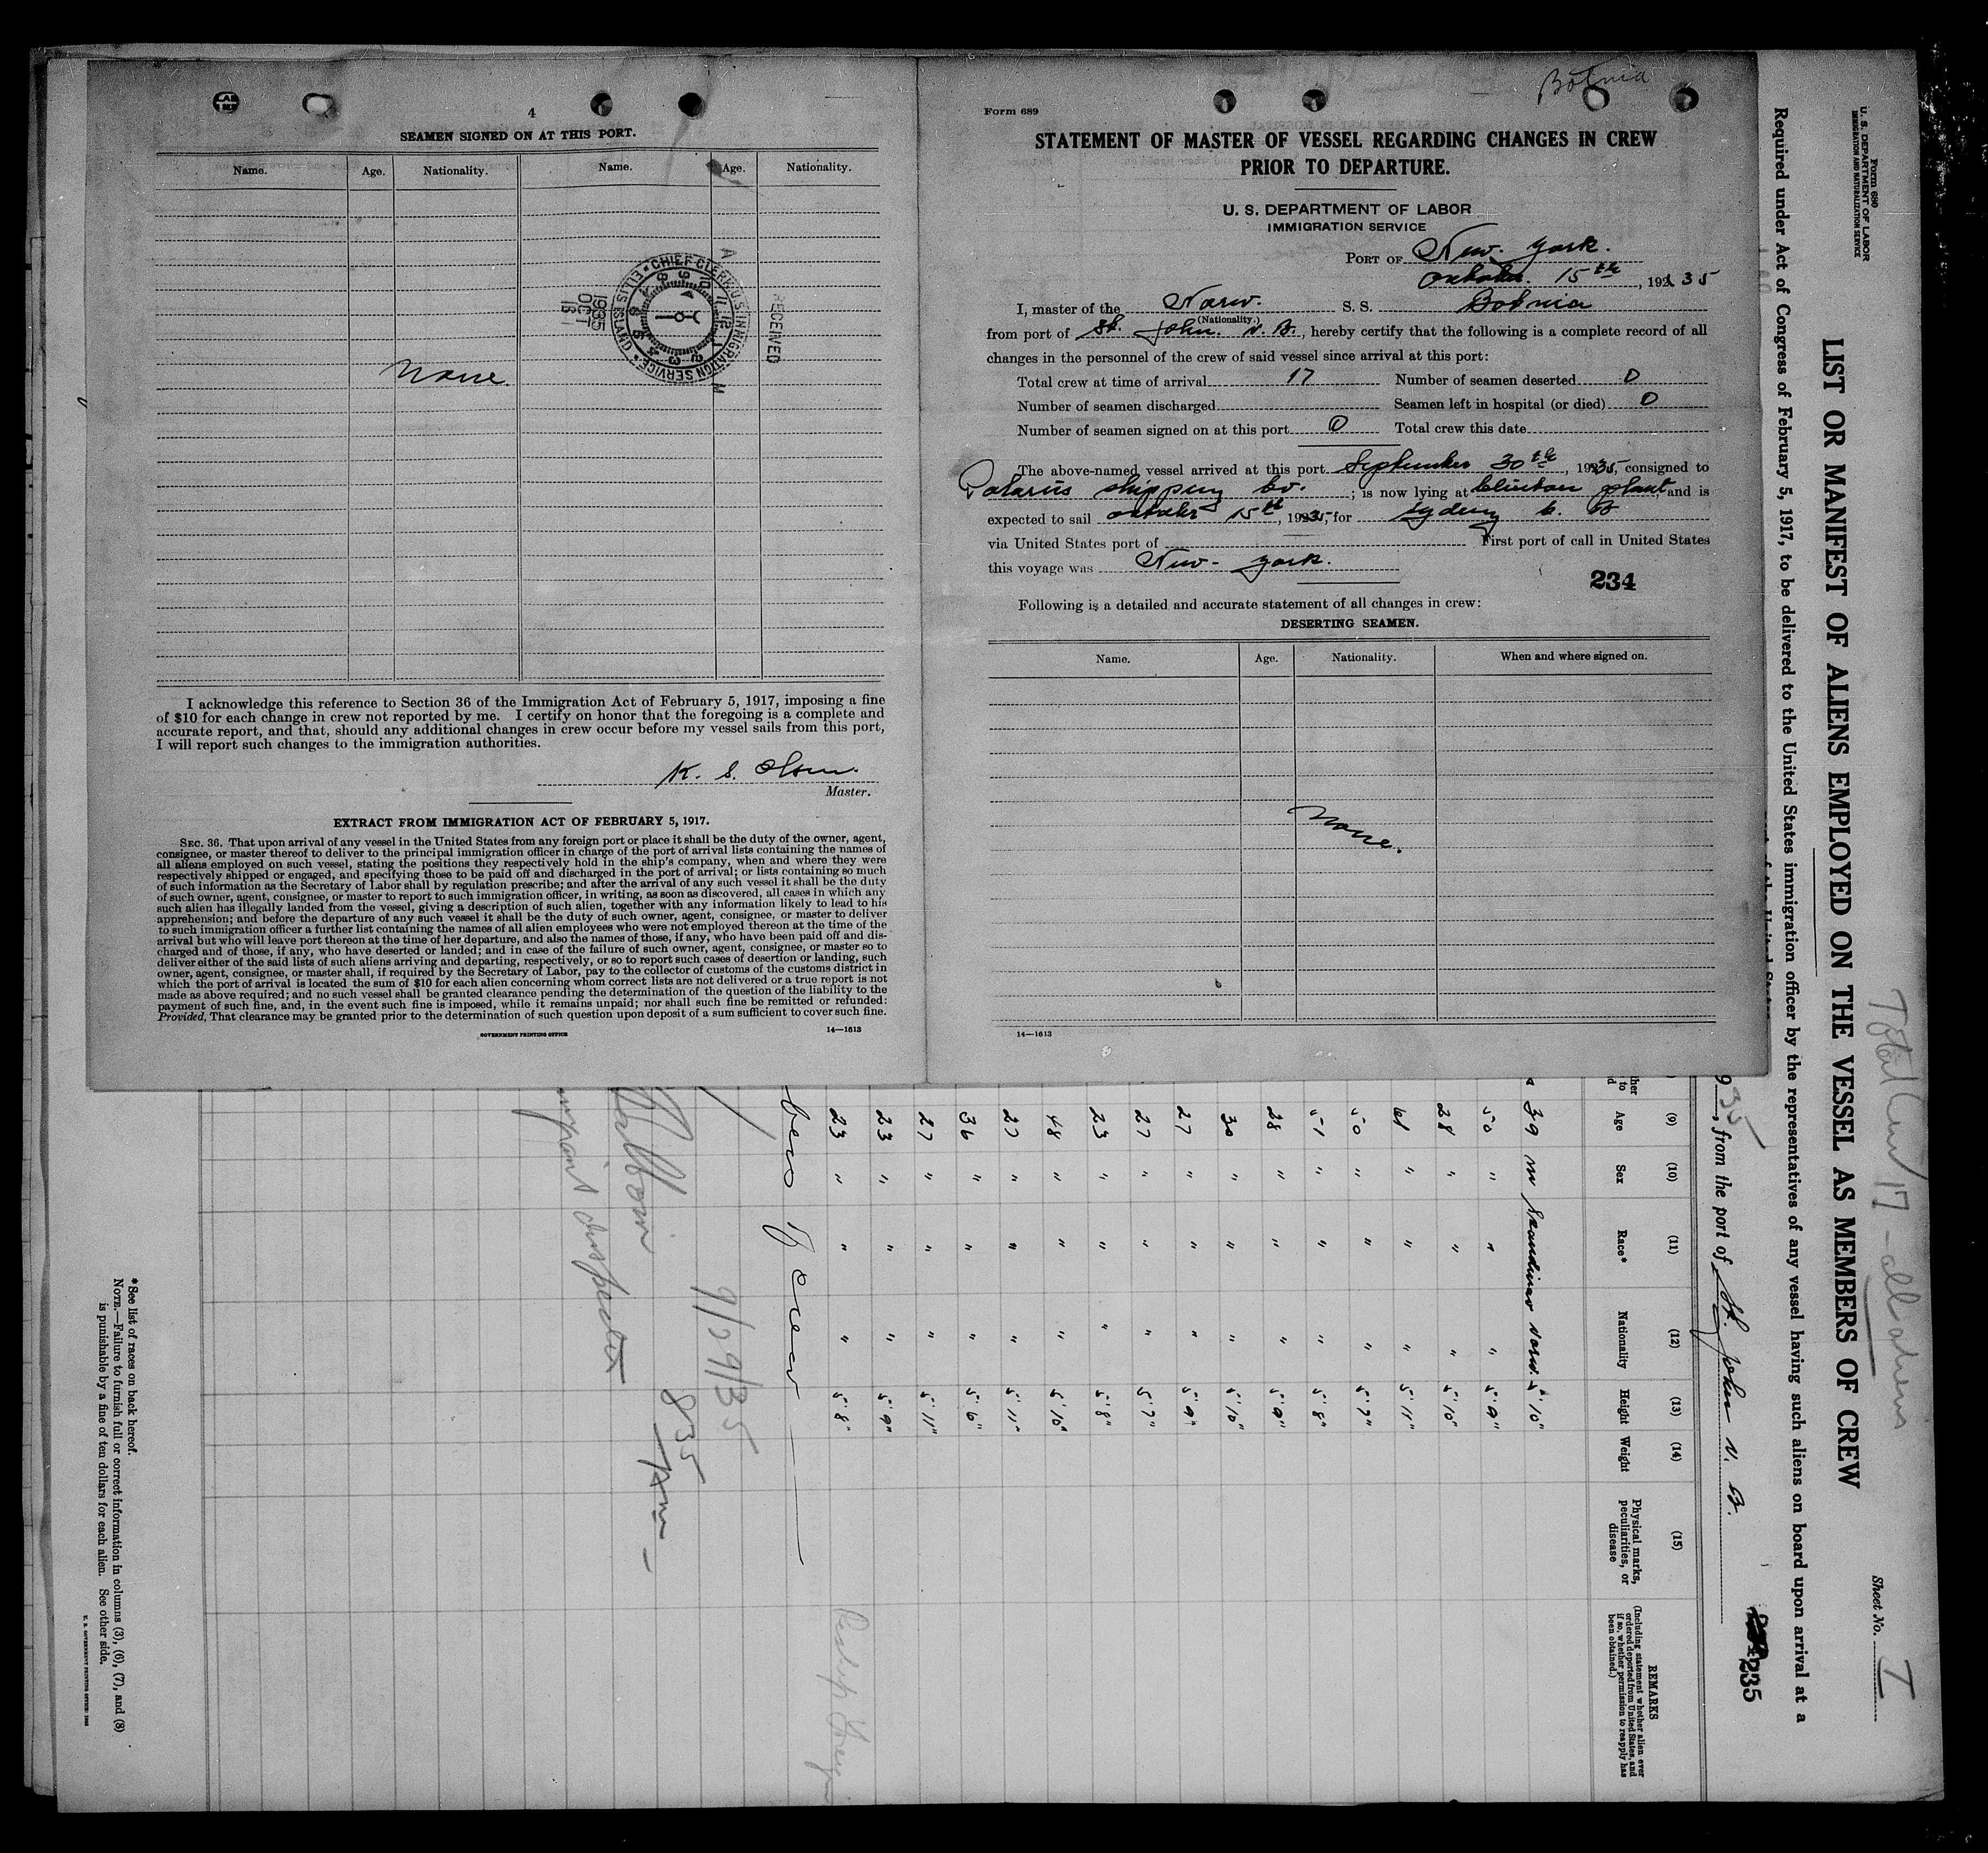 4
SEAMEN SIGNED ON AT THIS PORT.
Name. Age. Nationality. Name. Age. Nationality.
RECEIVED
A M
CHIEF CLERK U.S. IMMIGRATION SERVICE
ELLIS ISLAND
1935 OCT 15
None.
I acknowledge this reference to Section 36 of the Immigration Act of February 5, 1917, imposing a fine
of $10 for each change in crew not reported by me. I certify on honor that the foregoing is a complete and
accurate report, and that, should any additional changes in crew occur before my vessel sails from this port,
I will report such changes to the immigration authorities.
K. S. Olsen.
Master.
EXTRACT FROM IMMIGRATION ACT OF FEBRUARY 5, 1917.
SEC. 36. That upon arrival of any vessel in the United States from any foreign port or place it shall be the duty of the owner, agent,
consignee, or master thereof to deliver to the principal immigration officer in charge of the port of arrival lists containing the names of
all aliens employed on such vessel, stating the positions they respectively hold in the ship's company, when and where they were
respectively shipped or engaged, and specifying those to be paid off and discharged in the port of arrival; or lists containing so much
of such information as the Secretary of Labor shall by regulation prescribe; and after the arrival of any such vessel it shall be the duty
of such owner, agent, consignee, or master to report to such immigration officer, in writing, as soon as discovered, all cases in which any
such alien has illegally landed from the vessel, giving a description of such alien, together with any information likely to lead to his
apprehension; and before the departure of any such vessel it shall be the duty of such owner, agent, consignee, or master to deliver
to such immigration officer a further list containing the names of all alien employees who were not employed thereon at the time of the
arrival but who will leave port thereon at the time of her departure, and also the names of those, if any, who have been paid off and dis-
charged and of those, if any, who have deserted or landed; and in case of the failure of such owner, agent, consignee, or master so to
deliver either of the said lists of such aliens arriving and departing, respectively, or so to report such cases of desertion or landing, such
owner, agent, consignee, or master shall, if required by the Secretary of Labor, pay to the collector of customs of the customs district in
which the port of arrival is located the sum of $10 for each alien concerning whom correct lists are not delivered or a true report is not
made as above required; and no such vessel shall be granted clearance pending the determination of the question of the liability to the
payment of such fine, and, in the event such fine is imposed, while it remains unpaid; nor shall such fine be remitted or refunded:
Provided, That clearance may be granted prior to the determination of such question upon deposit of a sum sufficient to cover such fine.
GOVERNMENT PRINTING OFFICE 14—1613
Botnia
Form 689
STATEMENT OF MASTER OF VESSEL REGARDING CHANGES IN CREW
PRIOR TO DEPARTURE.
U. S. DEPARTMENT OF LABOR
IMMIGRATION SERVICE
PORT OF New-York.
October. 15th, 192 35
I, master of the Norw. S. S. Botnia
(Nationality.)
from port of St. John. N. B., hereby certify that the following is a complete record of all
changes in the personnel of the crew of said vessel since arrival at this port:
Total crew at time of arrival 17 Number of seamen deserted 0
Number of seamen discharged Seamen left in hospital (or died) 0
Number of seamen signed on at this port 0 Total crew this date
The above-named vessel arrived at this port September 30th, 1935, consigned to
Polarus shipping Co. ; is now lying at Clinton plant, and is
expected to sail October 15th, 1935, for Sydney C. B
via United States port of First port of call in United States
this voyage was New-York.
234
Following is a detailed and accurate statement of all changes in crew:
DESERTING SEAMEN.
Name. Age. Nationality. When and where signed on.
None.
14—1613
Form 680
U. S. DEPARTMENT OF LABOR
IMMIGRATION AND NATURALIZATION SERVICE
Total Crew 17 - all aliens
Sheet No. I
LIST OR MANIFEST OF ALIENS EMPLOYED ON THE VESSEL AS MEMBERS OF CREW
Required under Act of Congress of February 5, 1917, to be delivered to the United States immigration officer by the representatives of any vessel having such aliens on board upon arrival at a
235
935, from the port of St. John N. B.
(9) (10) (11) (12) (13) (14) (15)
Age Sex Race* Nationality Height Weight Physical marks, peculiarities, or disease REMARKS
(Including statement whether alien ever ordered deported from United States, and if so, whether permission to reapply has been obtained.)
39 m Scandinav Norw. 5' 10"
50 " " " 5' 9"
28 " " " 5' 10"
" " " 5' 11"
50 " " " 5' 7"
51 " " " 5' 8"
28 " " " 5' 9"
30 " " " 5' 10"
27 " " " 5' 9"
27 " " " 5' 7"
23 " " " 5' 8"
48 " " " 5' 10"
27 " " " 5' 11"
36 " " " 5' 6"
27 " " " 5' 11"
23 " " " 5' 9"
23 " " " 5' 8"
bers of crew
9/29/35
835 Pm
Inspector
*See list of races on back hereof.
NOTE.—Failure to furnish full or correct information in columns (3), (6), (7), and (8)
is punishable by a fine of ten dollars for each alien. See other side.
U. S. GOVERNMENT PRINTING OFFICE